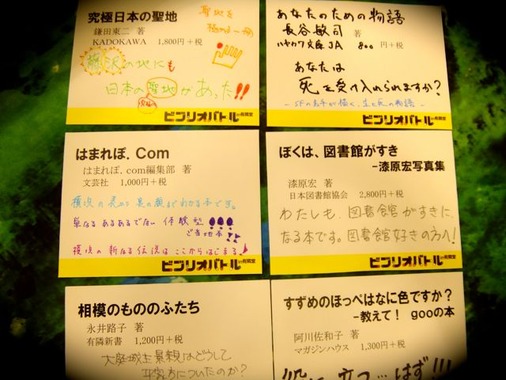 究極日本の聖地
鎌田東二 著
KADOKAWA 1,800円+税
聖地を
横浜の地にも
日本の聖地があった!!
ビブリオバトル in有隣堂
あなたのための物語
長谷敏司 著
ハヤカワ文庫JA 800円+税
あなたは
死を受け入れられますか?
ビブリオバトル in有隣堂
はまれぽ.Com
はまれぽ.com編集部 著
文芸社 1,000円+税
横浜の表の顔がわかる本です。
単なるあるあるでない体験型
ご当地本
横浜の新たな伝説はここからはじまる
ビブリオバトル in有隣堂
ぼくは、図書館がすき
-漆原宏写真集
漆原宏 著
日本図書館協会 2,800円+税
わたしも、図書館がすきに
なる本です。図書館好きの方へ!
ビブリオバトル in有隣堂
相模のもののふたち
永井路子 著
有隣新書 1,200円+税
大庭城主景親はどうして
平家方についたのか?
すずめのほっぺはなに色ですか?
-教えて! gooの本
阿川佐和子 著
マガジンハウス 1,300円+税
役に立つ…はず!!!